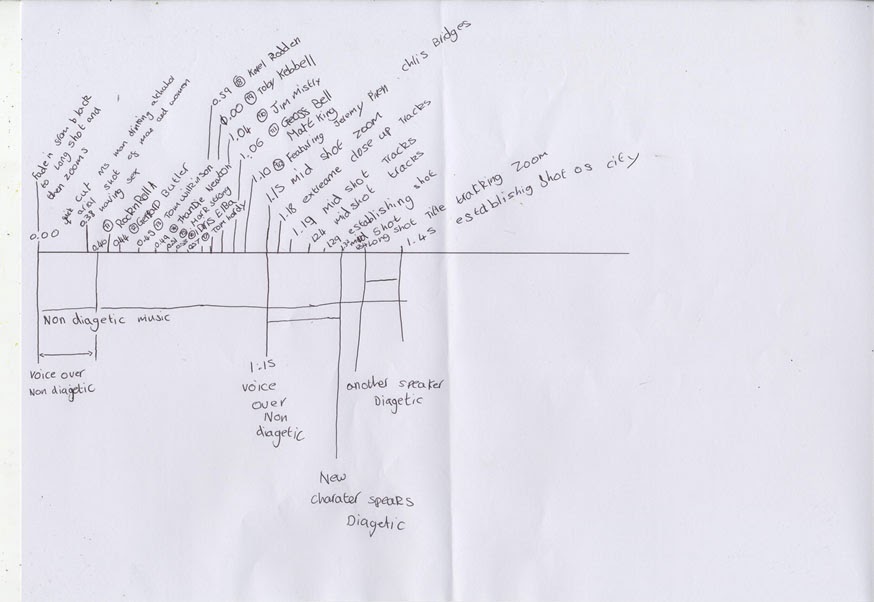 0.00
fade in from black
to long shot and
then zooms
cut ms man drinking
arial shot of man and woman
0.38 having sex
0.40 RocknRollA
0.44 Gerard Butler
0.45 Tom Wilkinson
0.49 Thandie Newton
Mark Strong
IDRIS ElBa
Tom Hardy
0.59 Karel Rodden
0.00 Toby Kebbell
1.04 Jim mistry
1.06 Geoss Bell
Matt King
1.10 Featuring Jeremy Piven Chris Bridges
1.15 mid shot zoom
1.18 extreame close up Tracks
1.19 mid shot Tracks
1.24 midshot tracks
1.29 establishing shot
mid shot
long shot Title tracking Zoom
1.45 establishing shot os city
Non diagetic music
Voice over
Non diagetic
1.15
voice
over
Non
diagetic
another speaker
Diagetic
New
charater spears
Diagetic